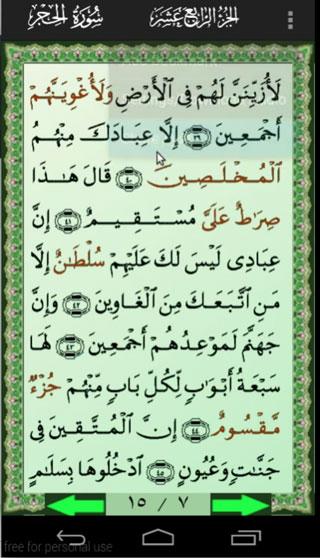 سُورَةُ الحِجْر الجزء الرابع عشر
لَأُزَيِّنَنَّ لَهُمْ فِي الْأَرْضِ وَلَأُغْوِيَنَّهُمْ
أَجْمَعِينَ ﴿٣٩﴾ إِلَّا عِبَادَكَ مِنْهُمُ
الْمُخْلَصِينَ ﴿٤٠﴾ قَالَ هَٰذَا
صِرَاطٌ عَلَيَّ مُسْتَقِيمٌ ﴿٤١﴾ إِنَّ
عِبَادِي لَيْسَ لَكَ عَلَيْهِمْ سُلْطَٰنٌ إِلَّا
مَنِ اتَّبَعَكَ مِنَ الْغَاوِينَ ﴿٤٢﴾ وَإِنَّ
جَهَنَّمَ لَمَوْعِدُهُمْ أَجْمَعِينَ ﴿٤٣﴾ لَهَا
سَبْعَةُ أَبْوَٰبٍ لِّكُلِّ بَابٍ مِّنْهُمْ جُزْءٌ
مَّقْسُومٌ ﴿٤٤﴾ إِنَّ الْمُتَّقِينَ فِي
جَنَّٰتٍ وَعُيُونٍ ﴿٤٥﴾ ادْخُلُوهَا بِسَلَٰمٍ
١٥ / ٧
free for personal use